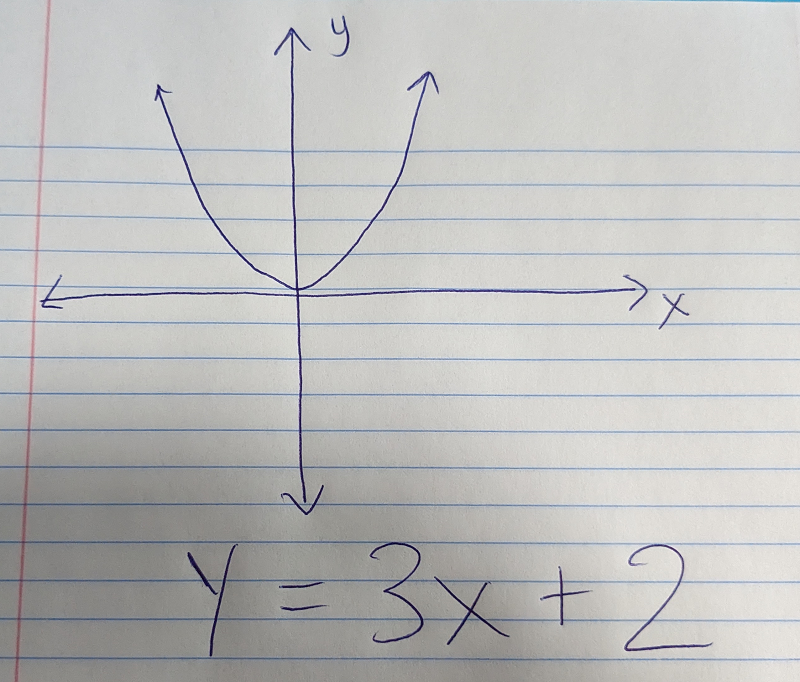 y
x
y = 3x + 2